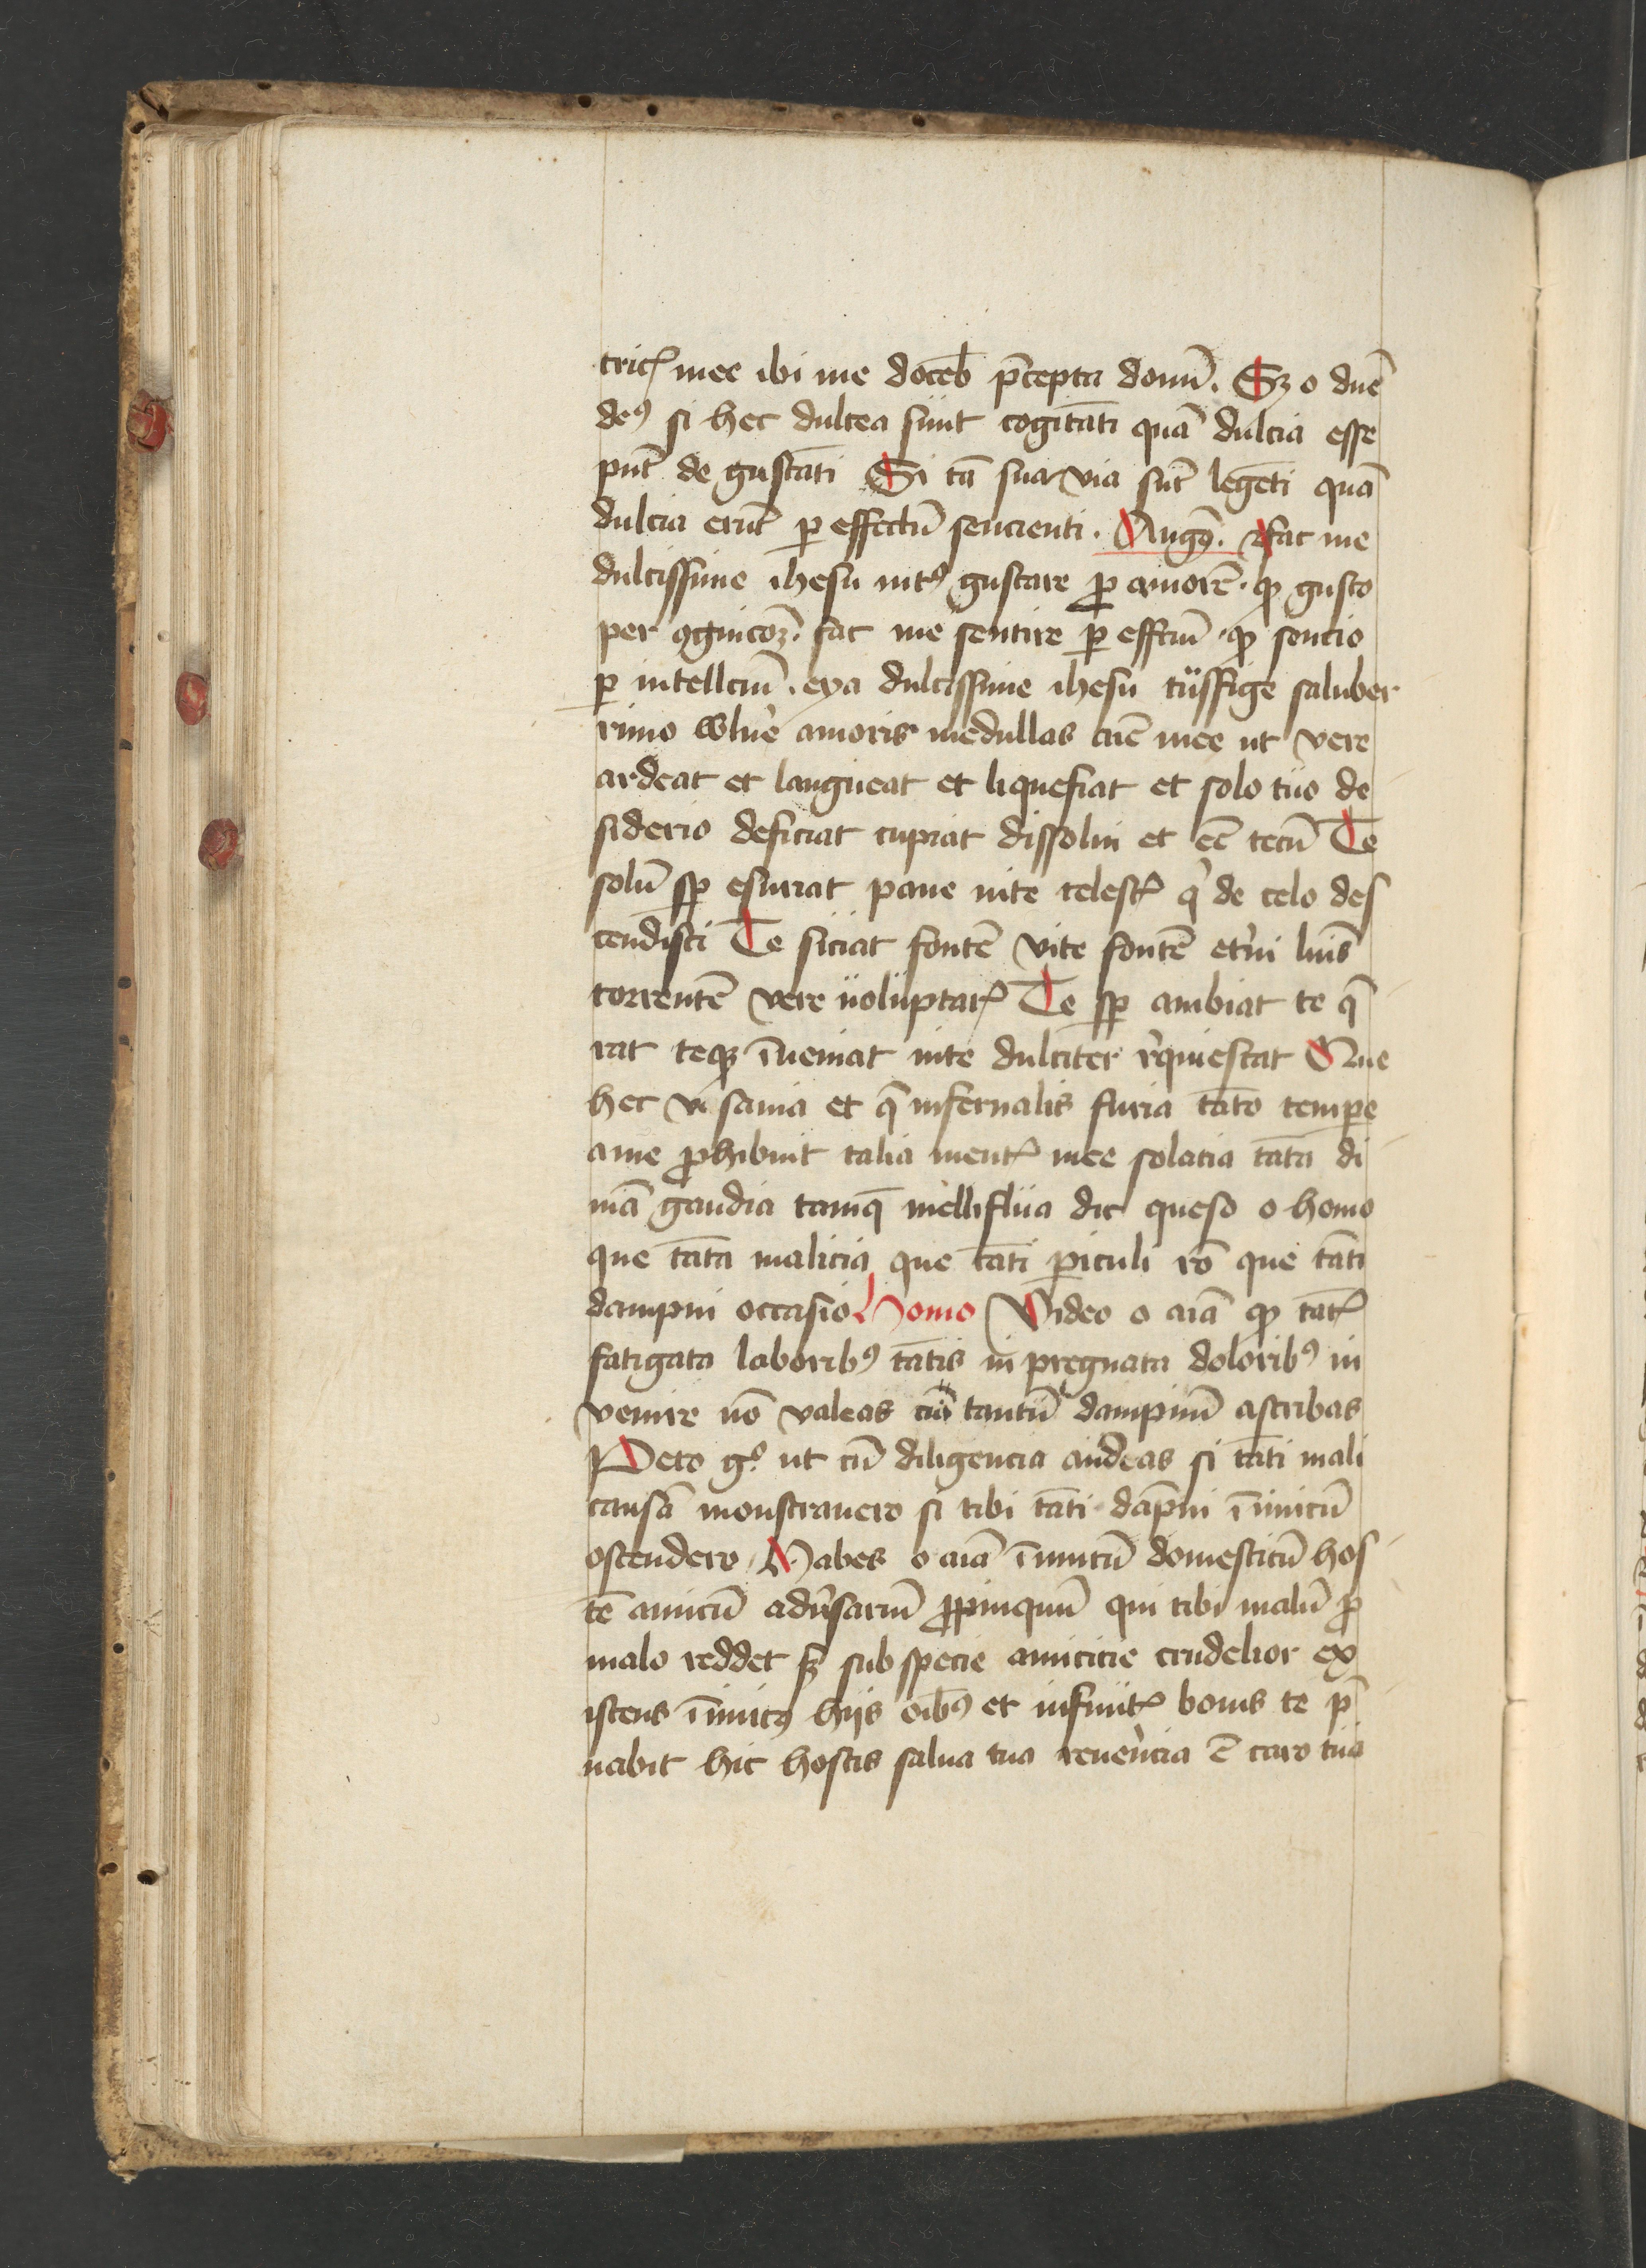 tric̄ mee ibi me doceb̄ p̄cepta domī. Sꝫ o dn̄e
deꝯ si hec dulcea sunt cogitāti quā dulcia esse
pn̄t de gustāti Si tā suavia sūt legēti quā
dulcia erūt ꝑ effectū sencienti. Augꝯ. Fac me
dulcissime ihesu intꝯ gustare ꝑ amorē. qꝫ gusto
per ꝯgnicoꝫ. fac me sentire ꝑ effcm̄ .qꝫ sencio
ꝑ intellcm̄. eya dulcissime ihesu tūsfige saluber
rimo wlne amoris medullas aīe mee ut vere
ardeat et langueat et liquefiat et solo tuo de
siderio deficiat cupiat dissolui et eē tecū Te
solū sꝑ esuriat pane uite celest̄ qͥ de celo des
cendisti Te siciat fontē vite fontē et̓ni lūis
torrentē vere uoluptat̄ Te sꝑ ambiat te q̄
rat teqꝫ īueniat inte dulciter r̓quiescat Que
hec vesania et q̄ infernalis furia tāto tempe
a me ꝓhibuit talia ment̄ mee solacia tāta di
uīa gaudia tamq̄ melliflua dic queso o homo
que tāta malicia que tāti ꝑiculi rō que tāti
dampni occasio Homo Video o aīa qꝫ tāt̄
fatigata laboribꝯ tātis inpregnata doloribꝯ in
venire nō valeas cui tantū dampnū ascribas
Peto gͦ. ut cū diligencia audeas si tāti mali
causā monstravero si tibi tāti dāpni īimicū
ostendero. Habes o aīa īimicū domesticū hos
tē amicū adu̓sariū ꝓpinquū qui tibi malū ꝓ
malo reddet sꝫ sub specie amicicie crudelior ex
istens īimicꝯ hijs oībꝯ et infinit̄ bonis te pͥ
uabit hic hostis salua tua reuer̓ncia ē caro tua